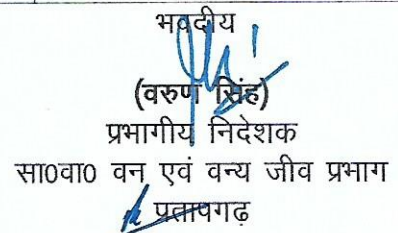 भवदीय
(वरुण सिंह)
प्रभागीय निदेशक
सा0वा0 वन एवं वन्य जीव प्रभाग
प्रतापगढ़